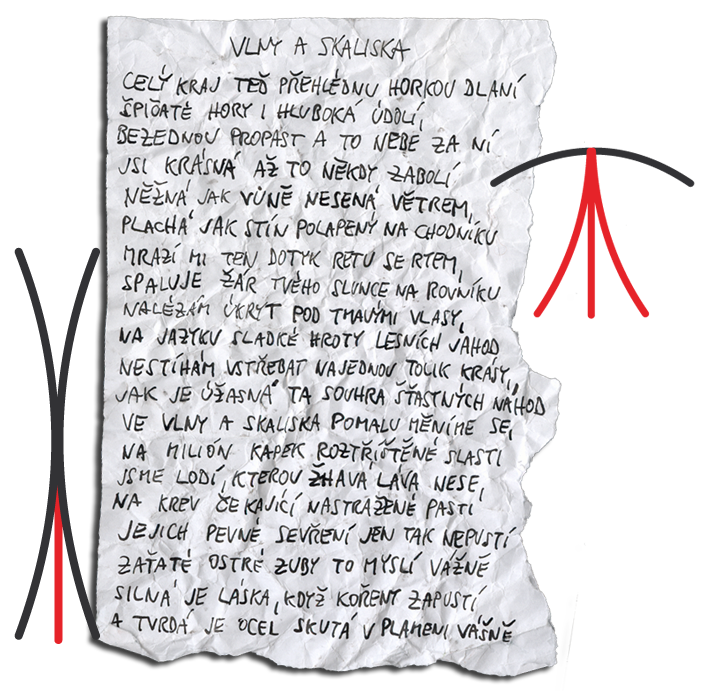 VLNY A SKALISKA
CELÝ KRAJ TEĎ PŘEHLÉDNU HORKOU DLANÍ
ŠPIČATÉ HORY I HLUBOKÁ ÚDOLÍ,
BEZEDNOU PROPAST A TO NEBE ZA NÍ
JSI KRÁSNÁ AŽ TO NĚKDY ZABOLÍ
NĚŽNÁ JAK VŮNĚ NESENÁ VĚTREM,
PLACHÁ JAK STÍN POLAPENÝ NA CHODNÍKU
MRAZÍ MI TEN DOTYK RETU SE RTEM,
SPALUJE ŽÁR TVÉHO SLUNCE NA ROVNÍKU
NALÉZÁM ÚKRYT POD TMAVÝMI VLASY,
NA JAZYKU SLADKÉ HROTY LESNÍCH JAHOD
NESTÍHÁM VSTŘEBAT NAJEDNOU TOLIK KRÁSY,
JAK JE ÚŽASNÁ TA SOUHRA ŠŤASTNÝCH NÁHOD
VE VLNY A SKALISKA POMALU MĚNÍME SE,
NA MILIÓN KAPEK ROZTŘÍŠTĚNÉ SLASTI
JSME LODÍ, KTEROU ŽHAVÁ LÁVA NESE,
NA KREV ČEKAJÍCÍ NASTRAŽENÉ PASTI
JEJICH PEVNÉ SEVŘENÍ JEN TAK NEPUSTÍ
ZAŤATÉ OSTRÉ ZUBY TO MYSLÍ VÁŽNĚ
SILNÁ JE LÁSKA, KDYŽ KOŘENY ZAPUSTÍ
A TVRDÁ JE OCEL SKUTÁ V PLAMENI VÁŠNĚ